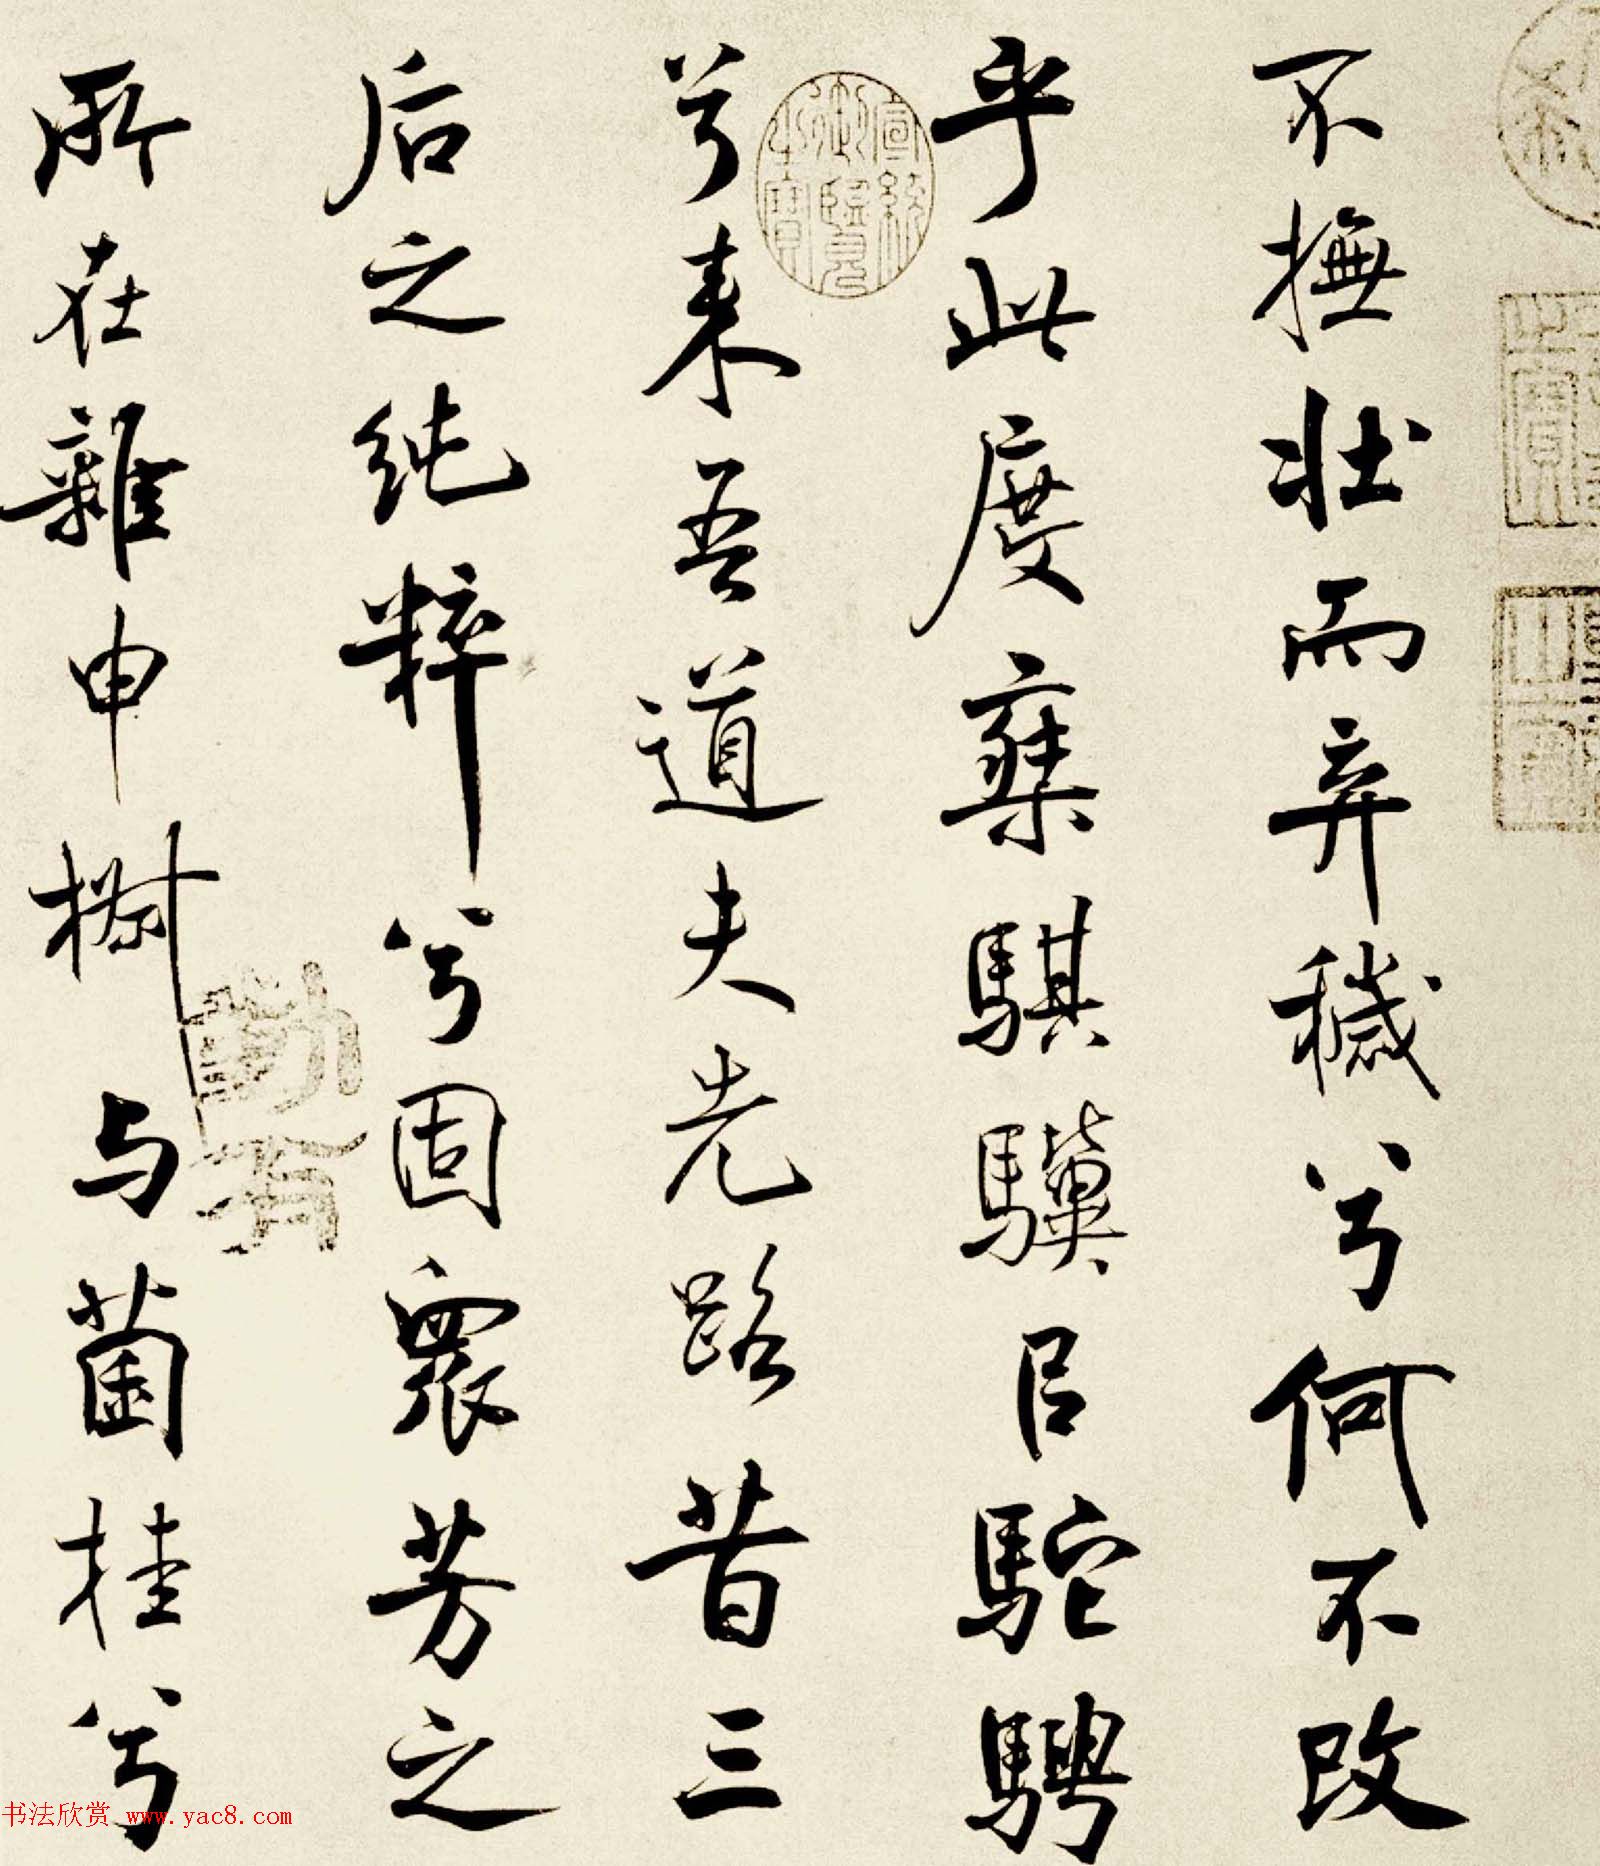 不撫壯而弃穢兮何不改
乎此度椉騏驥㠯駝騁
兮来吾道夫先路昔三
后之純粹兮固衆芳之
所在雜申椒与菌桂兮
宣統御覽之寶
书法欣赏 www.yac8.com